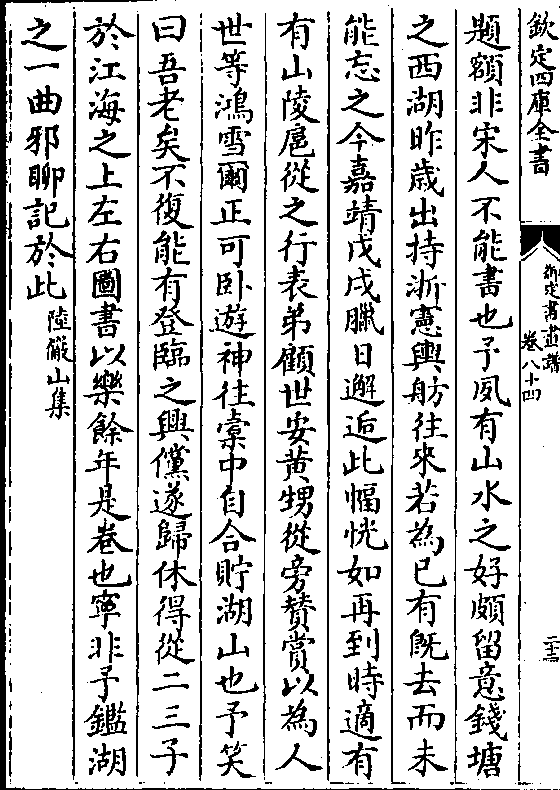 欽定四庫全書
題額非宋人不能書也予夙有山水之好頗留意錢塘
之西湖昨歲出持浙憲輿舫往來若為已有旣去而未
能忘之今嘉靖戊戌臘日邂逅此幅恍如再到時適有
有山陵扈從之行表弟顧世安黃甥從旁賛賞以為人
世等鴻雪爾正可卧遊神往槖中自合貯湖山也予笑
曰吾老矣不復能有登臨之興儻遂歸休得從二三子
於江海之上左右圖書以樂餘年是卷也寧非予鑑湖
之一曲邪聊記於此 陸儼山集
御定書畫譜
卷八十四
二十三